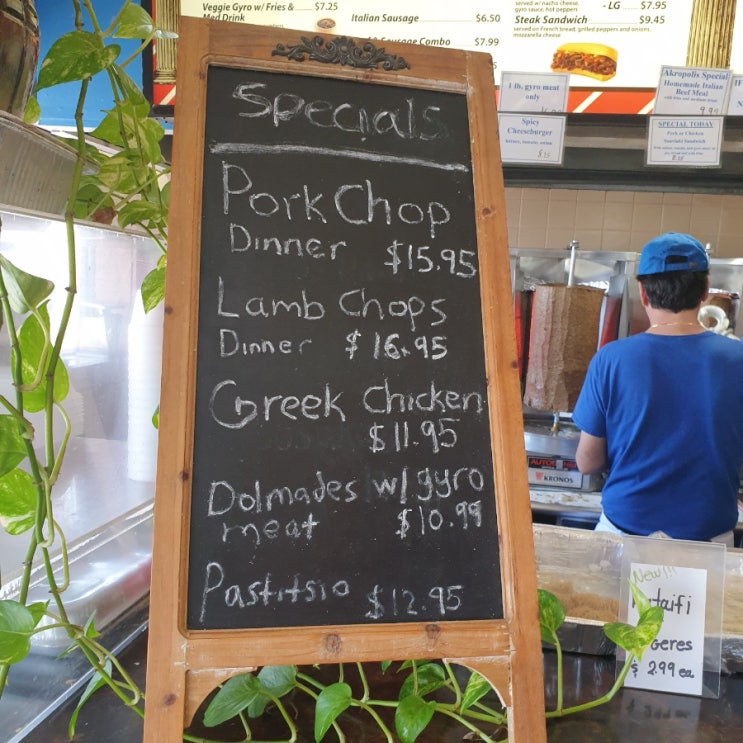 Veggie Gyro w/ Fries & $7.25
Med Drink
Italian Sausage $6.50
Sausage Combo $7.99
served w/ nacho cheese
gyro sauce, hot peppers
- LG $7.95
Steak Sandwich $9.45
served on French bread, grilled peppers and onions,
mozzarella cheese
1 lb. gyro meat
only
Spicy
Cheeseburger
lettuce, tomato, onion
Akropolis Special
Homemade Italian
Beef Meal
with fries and medium drink
9.99
SPECIAL TODAY
Pork or Chicken
Souvlaki Sandwich
Specials
Pork Chop
Dinner $15.95
Lamb Chops
Dinner $16.95
Greek Chicken
$11.95
Dolmades w/ gyro
meat $10.99
Pastitsio $12.95
KRONOS
New!!!
taifi
geres
$2.99 ea